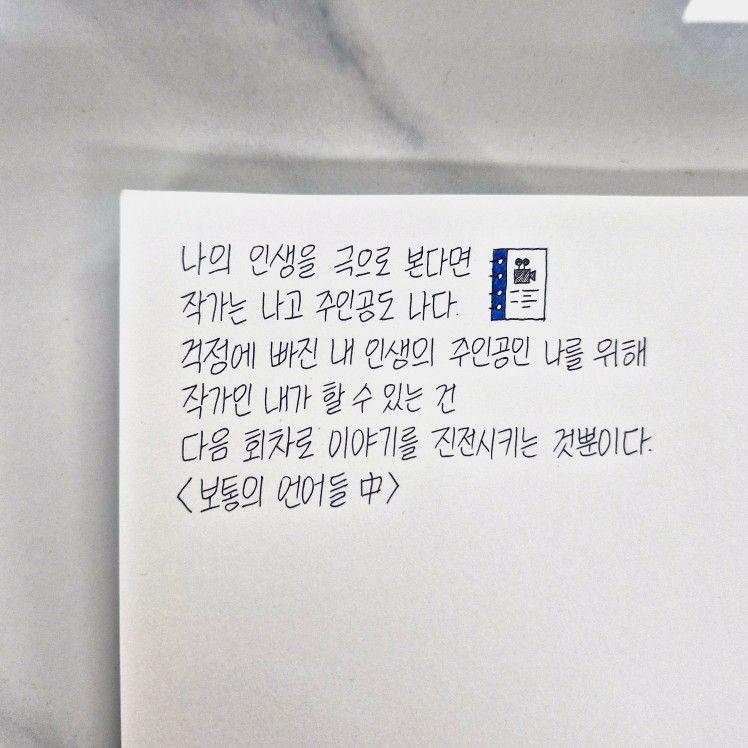 나의 인생을 극으로 본다면
작가는 나고 주인공도 나다.
걱정에 빠진 내 인생의 주인공인 나를 위해
작가인 내가 할 수 있는 건
다음 회차로 이야기를 진전시키는 것뿐이다.
<보통의 언어들 中>